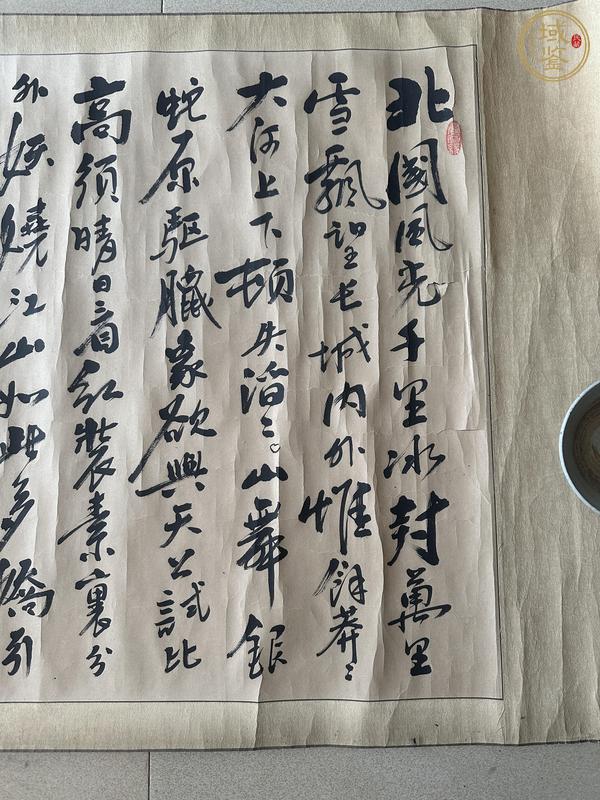 北國風光千里冰封萬里
雪飄望長城内外惟餘莽〻
大河上下頓失滔〻山舞銀
蛇原驅臘象欲與天公試比
高須晴日看紅裝素裹分
外妖嬈江山如此多嬌引
域鉴